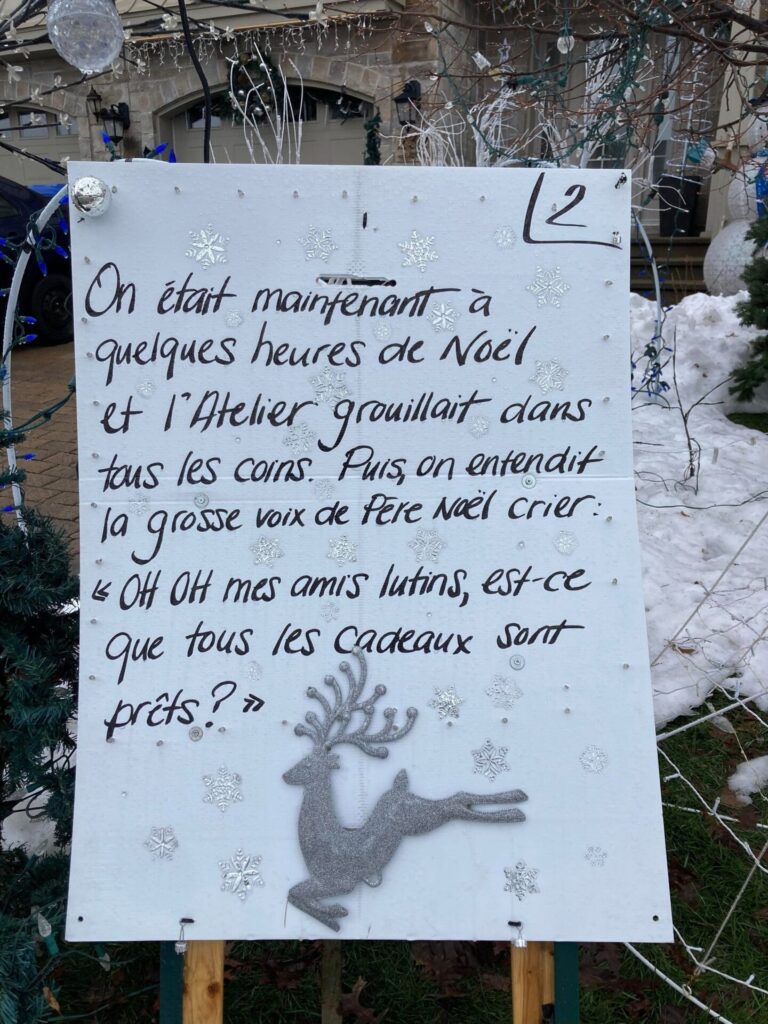 2
On était maintenant à
quelques heures de Noël
et l'Atelier grouillait dans
tous les coins. Puis, on entendit
la grosse voix de Père Noël crier:
« OH OH mes amis lutins, est-ce
que tous les cadeaux sont
prêts? »